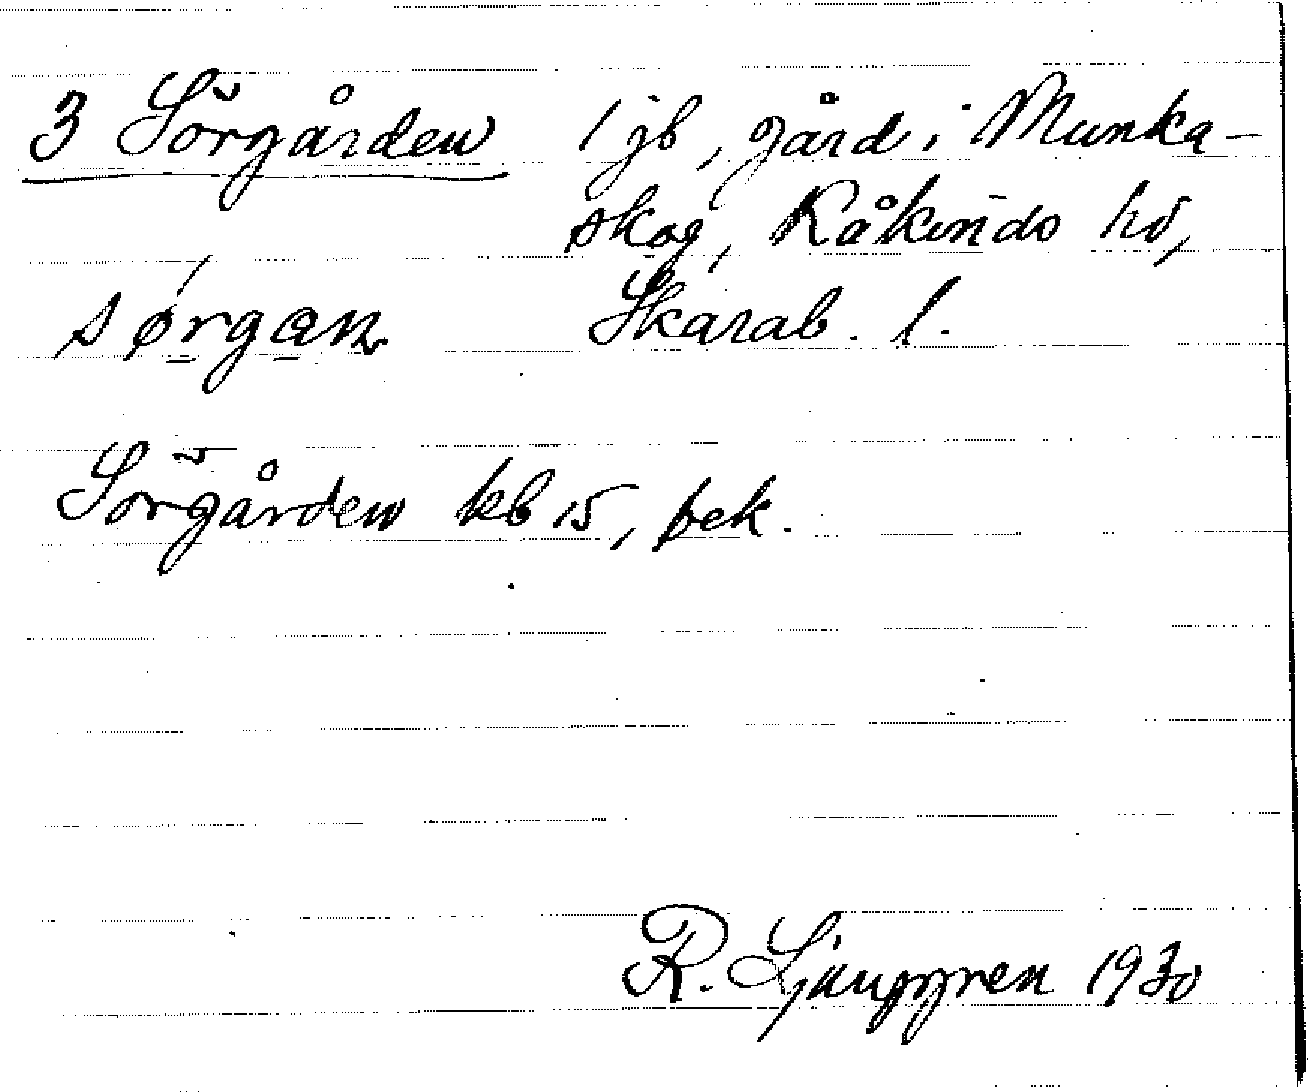 3 Sörgården 1 jb, gård i Munka-
skog, Kåkinds hd,
sørgan Skarab. l.
Sörgården kb 15, bek.
R. Ljunggren 1930